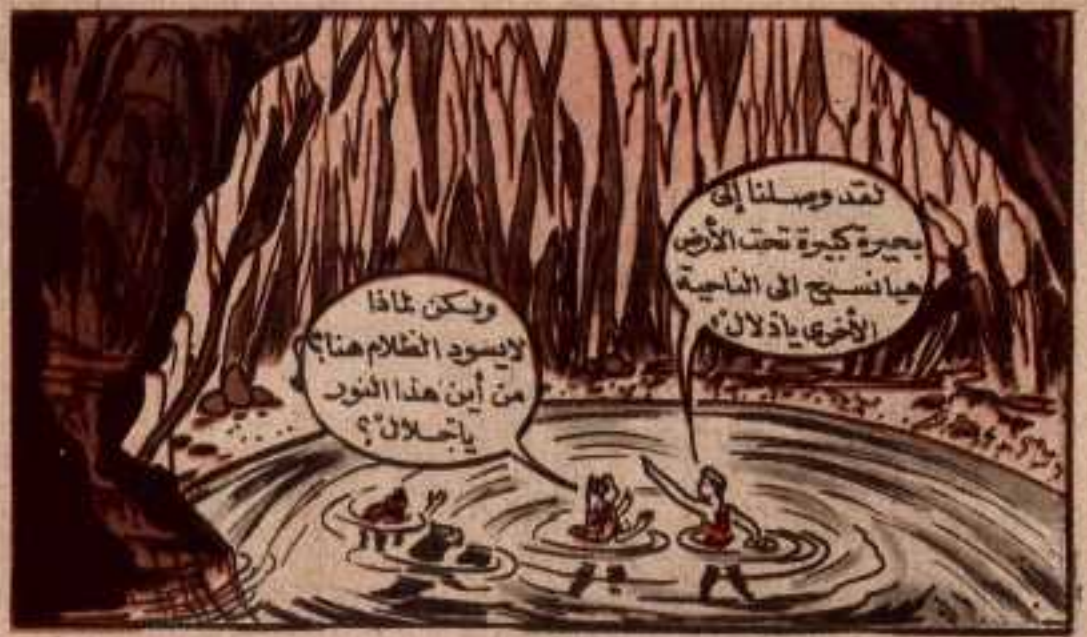 لقد وصلنا إلى
بحيرة كبيرة تحت الأرض
هيا نسبح الى الناحية
الأخرى يا "دلال"
ولكن لماذا
لا يسود الظلام هنا؟
من أين هذا النور
يا "جلال"؟